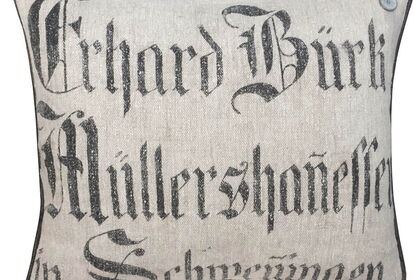 Erhard Bürk
Müllershañeſſen
in Schweñingen